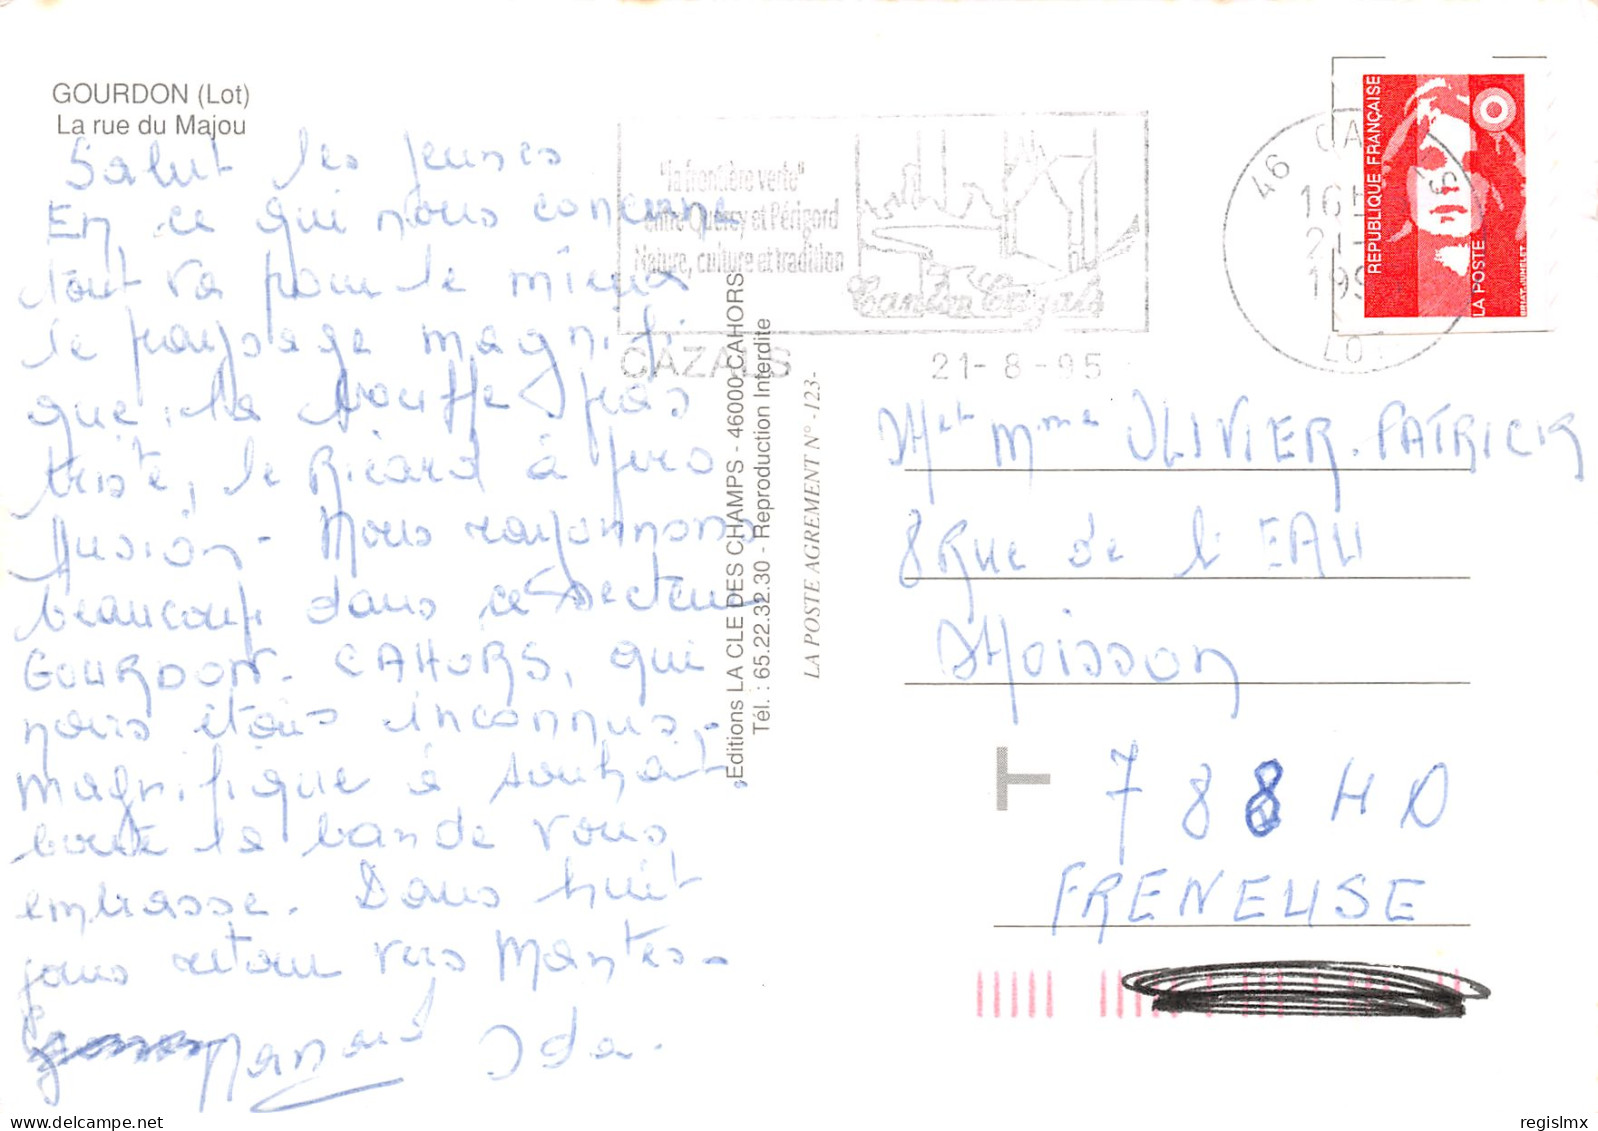 GOURDON (Lot)
La rue du Majou
Salut les jeunes
En ce qui nous concerne
tout va pour le mieux
le paysage magnifi-
que, la bouffe pas
triste, le Ricard à pro
fusion - Nous rayonnons
beaucoup dans ce secteur
GOURDON - CAHORS, qui
nous étais inconnus,
magnifique à souhait.
toute la bande vous
embrasse. Dans huit
jours retour vers Mantes -
Ida.
Editions LA CLE DES CHAMPS - 46000 CAHORS
Tél. : 65.22.32.30 - Reproduction Interdite
LA POSTE AGREMENT N° -123-
"la frontière verte"
entre Quercy et Périgord
Nature, culture et tradition
Canton Cazals
CAZALS
21-8-95
46 CA
16H
21-
199
LOT
REPUBLIQUE FRANÇAISE
LA POSTE
BRIAT-JUMELET
M et Mme OLIVIER.PATRICK
8 Rue de l'EAU
Moisson
T
78840
FRENEUSE
delcampe.net
regislmx